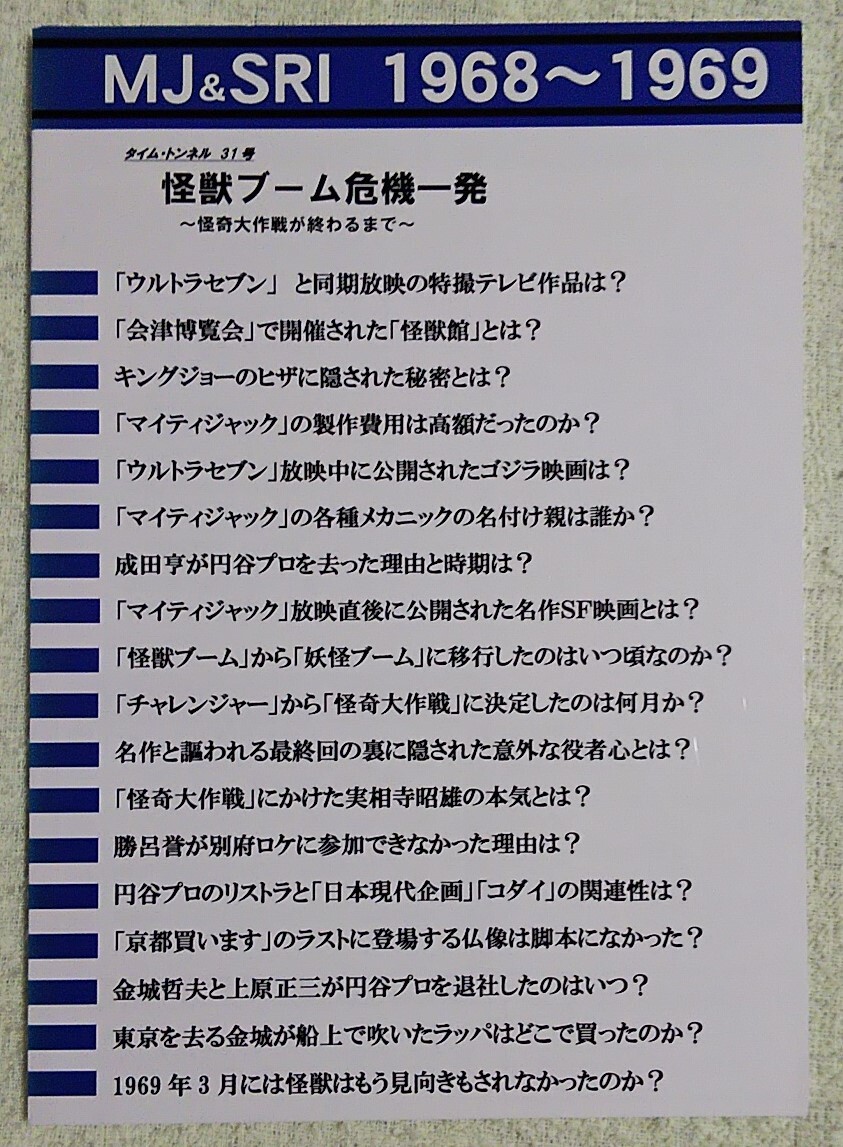 MJ&SRI 1968～1969
タイム・トンネル 31号
怪獣ブーム危機一発
～怪奇大作戦が終わるまで～
「ウルトラセブン」 と同期放映の特撮テレビ作品は？
「会津博覧会」で開催された「怪獣館」とは？
キングジョーのヒザに隠された秘密とは？
「マイティジャック」の製作費用は高額だったのか？
「ウルトラセブン」放映中に公開されたゴジラ映画は？
「マイティジャック」の各種メカニックの名付け親は誰か？
成田亨が円谷プロを去った理由と時期は？
「マイティジャック」放映直後に公開された名作SF映画とは？
「怪獣ブーム」から「妖怪ブーム」に移行したのはいつ頃なのか？
「チャレンジャー」から「怪奇大作戦」に決定したのは何月か？
名作と謳われる最終回の裏に隠された意外な役者心とは？
「怪奇大作戦」にかけた実相寺昭雄の本気とは？
勝呂誉が別府ロケに参加できなかった理由は？
円谷プロのリストラと「日本現代企画」「コダイ」の関連性は？
「京都買います」のラストに登場する仏像は脚本になかった？
金城哲夫と上原正三が円谷プロを退社したのはいつ？
東京を去る金城が船上で吹いたラッパはどこで買ったのか？
1969年3月には怪獣はもう見向きもされなかったのか？